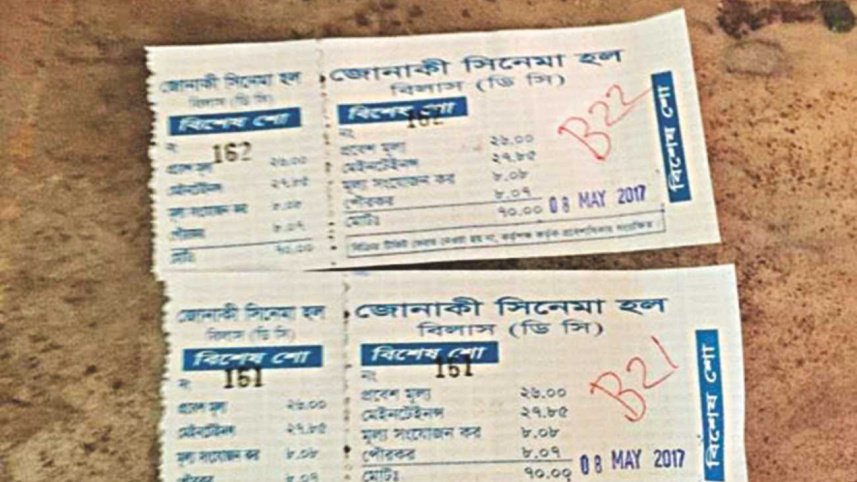 জোনাকী সিনেমা হল
বিলাস (ডি সি)
বিশেষ শো
নং
162
প্রবেশ মূল্য ২৬.০০
মেইনটেইনন্স ২৭.৮৫
মূল্য সংযোজন কর ৮.০৮
পৌরকর ৮.০৭
মোট ৭০.০০
জোনাকী সিনেমা হল
বিলাস (ডি সি)
বিশেষ শো
162
নং
প্রবেশ মূল্য ২৬.০০
মেইনটেইনন্স ২৭.৮৫
মূল্য সংযোজন কর ৮.০৮
পৌরকর ৮.০৭
মোটঃ ৭০.০০
08 MAY 2017
B22
বিশেষ শো
বিক্রিত টিকিট ফেরত নেওয়া হয় না, কর্তৃপক্ষ কর্তৃক প্রবেশাধিকার সংরক্ষিত।
জোনাকী সিনেমা হল
বিলাস (ডি সি)
বিশেষ শো
নং
161
প্রবেশ মূল্য ২৬.০০
মেইনটেইনন্স ২৭.৮৫
মূল্য সংযোজন কর ৮.০৮
পৌরকর ৮.০৭
জোনাকী সিনেমা হল
বিলাস (ডি সি)
বিশেষ শো
নং 161
প্রবেশ মূল্য ২৬.০০
মেইনটেইনন্স ২৭.৮৫
মূল্য সংযোজন কর ৮.০৮
পৌরকর ৮.০৭
মোটঃ ৭০.০০
08 MAY 2017
B21
বিশেষ শো